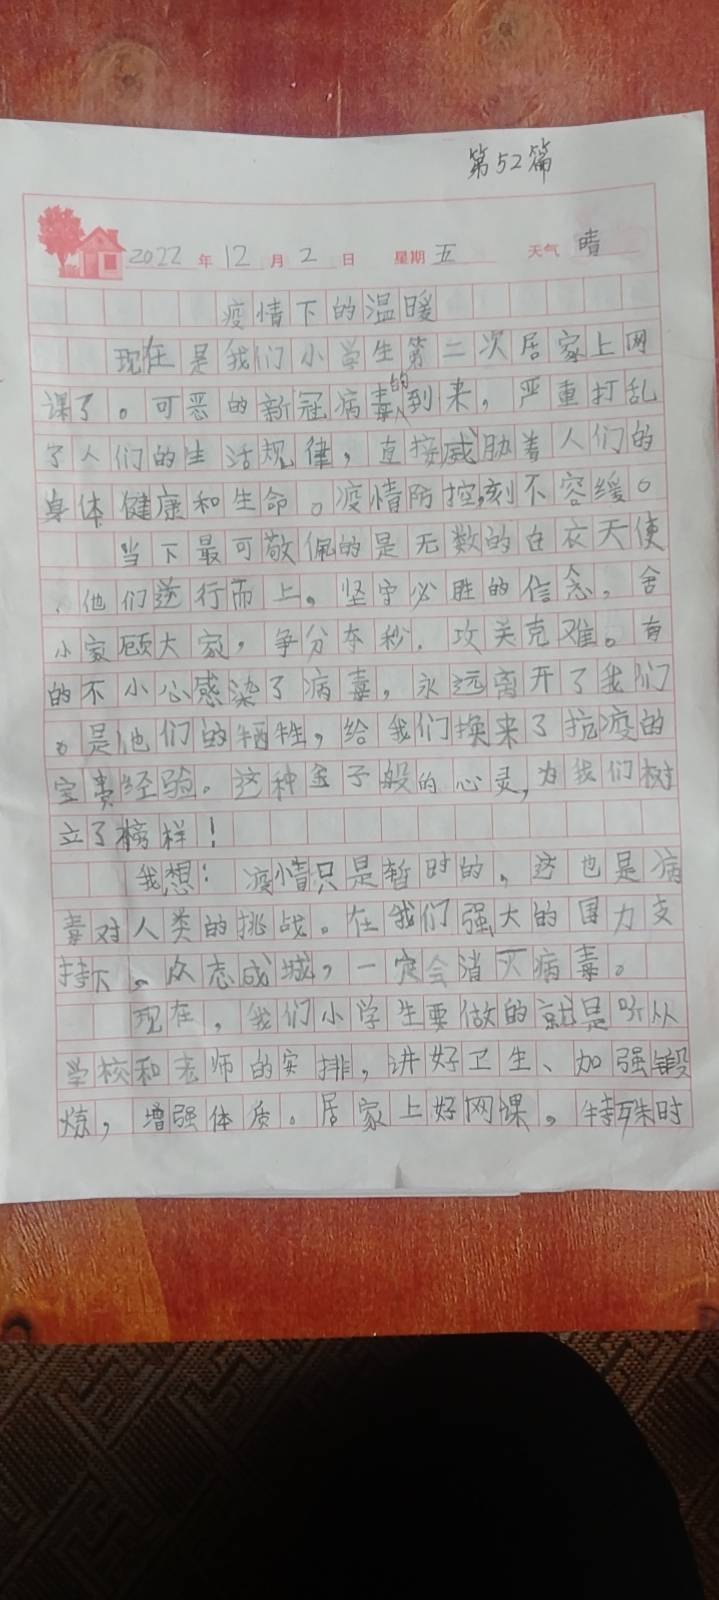 第52篇
2022年12月2日 星期五 天气晴
疫情下的温暖
现在是我们小学生第二次居家上网
课了。可恶的新冠病毒的到来，严重打乱
了人们的生活规律，直接威胁着人们的
身体健康和生命。疫情防控,刻不容缓。
当下最可敬佩的是无数的白衣天使
，他们逆行而上。坚守必胜的信念，舍
小家顾大家，争分夺秒，攻关克难。有
的不小心感染了病毒，永远离开了我们
。是他们的牺牲，给我们换来了抗疫的
宝贵经验。这种金子般的心灵，为我们树
立了榜样！
我想：疫情只是暂时的，这也是病
毒对人类的挑战。在我们强大的国力支
持下，众志成城，一定会消灭病毒。
现在，我们小学生要做的就是听从
学校和老师的安排，讲好卫生、加强锻
炼，增强体质。居家上好网课，特殊时